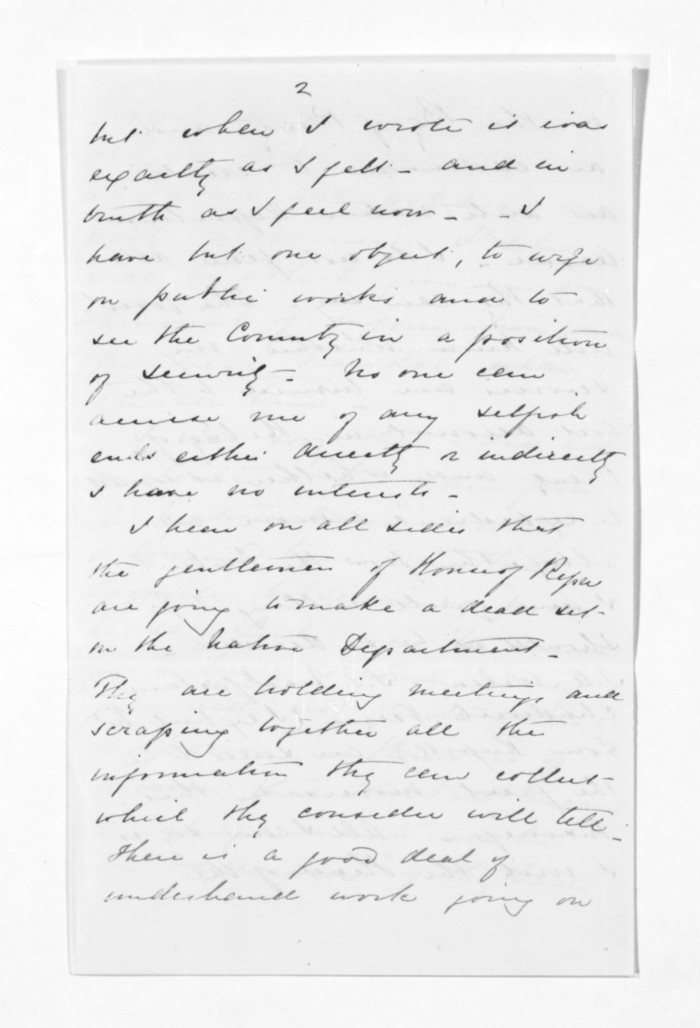 2
but when I wrote it was
exactly as I felt - and in
truth as I feel now - - I
have but one object, to urge
on public works and to
see the Country in a position
of security - No one can
accuse me of any selfish
ends either directly or indirectly
I have no interests -
I hear on all sides that
the gentlemen of House of Reps
are going to make a dead set
on the Native Department -
They are holding meetings and
scraping together all the
information they can collect
which they consider will tell -
There is a good deal of
underhand work going on